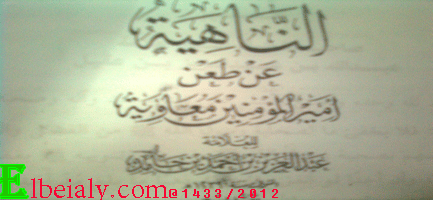 النَّاهِيَة
عَنْ طَعْنِ
أمير المؤمنين معاوية
للعلامة
عبد العزيز بن أحمد بن حامد
Elbeialy.com@1433/2012